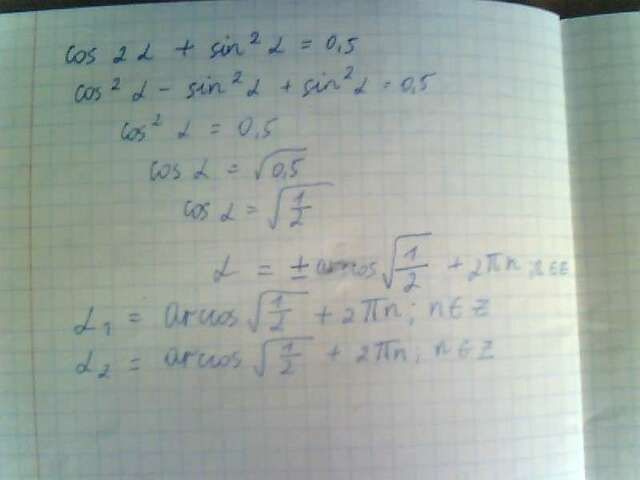 cos 2α + sin² α = 0,5
cos² α - sin² α + sin² α = 0,5
cos² α = 0,5
cos α = √0,5
cos α = √1/2
α = ± arccos √1/2 + 2πn; n ∈ Z
α₁ = arccos √1/2 + 2πn; n ∈ Z
α₂ = arccos √1/2 + 2πn; n ∈ Z